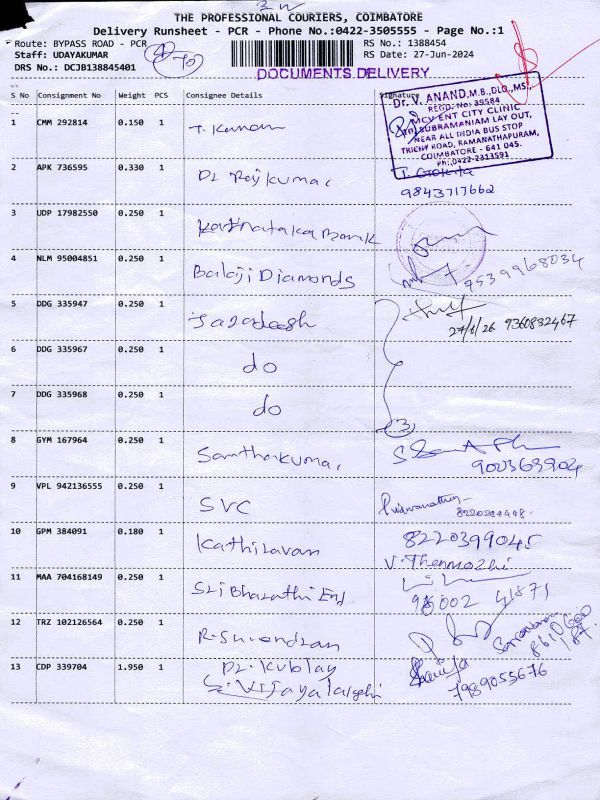 THE PROFESSIONAL COURIERS, COIMBATORE
Delivery Runsheet - PCR - Phone No.:0422-3505555 - Page No.:1
Route: BYPASS ROAD - PCR
RS No.: 1388454
Staff: UDAYAKUMAR
RS Date: 27-Jun-2024
DRS No.: DCJB138845401
DOCUMENTS DELIVERY
S No Consignment No Weight PCS Consignee Details Signature
Dr. V. ANAND, M.B.,DLO.,MS.,
REGD. No: 39584
MCV ENT CITY CLINIC
SUBRAMANIAM LAY OUT,
NEAR ALL INDIA BUS STOP
TRICHY ROAD, RAMANATHAPURAM,
COIMBATORE - 641 045.
Ph:0422-2313591
1 CMM 292814 0.150 1 T. Kannan
2 APK 736595 0.330 1 Dr Rajkumar
9843717662
3 UDP 17982550 0.250 1 Karnataka Bank
4 NLM 95004851 0.250 1 Balaji Diamonds
9539968034
5 DDG 335947 0.250 1 Jagadeesh
27/6/26 9360832467
6 DDG 335967 0.250 1 do
7 DDG 335968 0.250 1 do
3
8 GYM 167964 0.250 1 Santhakumar
9003639904
9 VPL 942136555 0.250 1 SVC
10 GPM 384091 0.180 1 Kathiravan
8220399045
V. Thenmozhi
11 MAA 704168149 0.250 1 Sri Bharathi End
12 TRZ 102126564 0.250 1 R. Surendran
13 CDP 339704 1.950 1 Dr. Kublay
S. Vijayalakshmi
7989055676